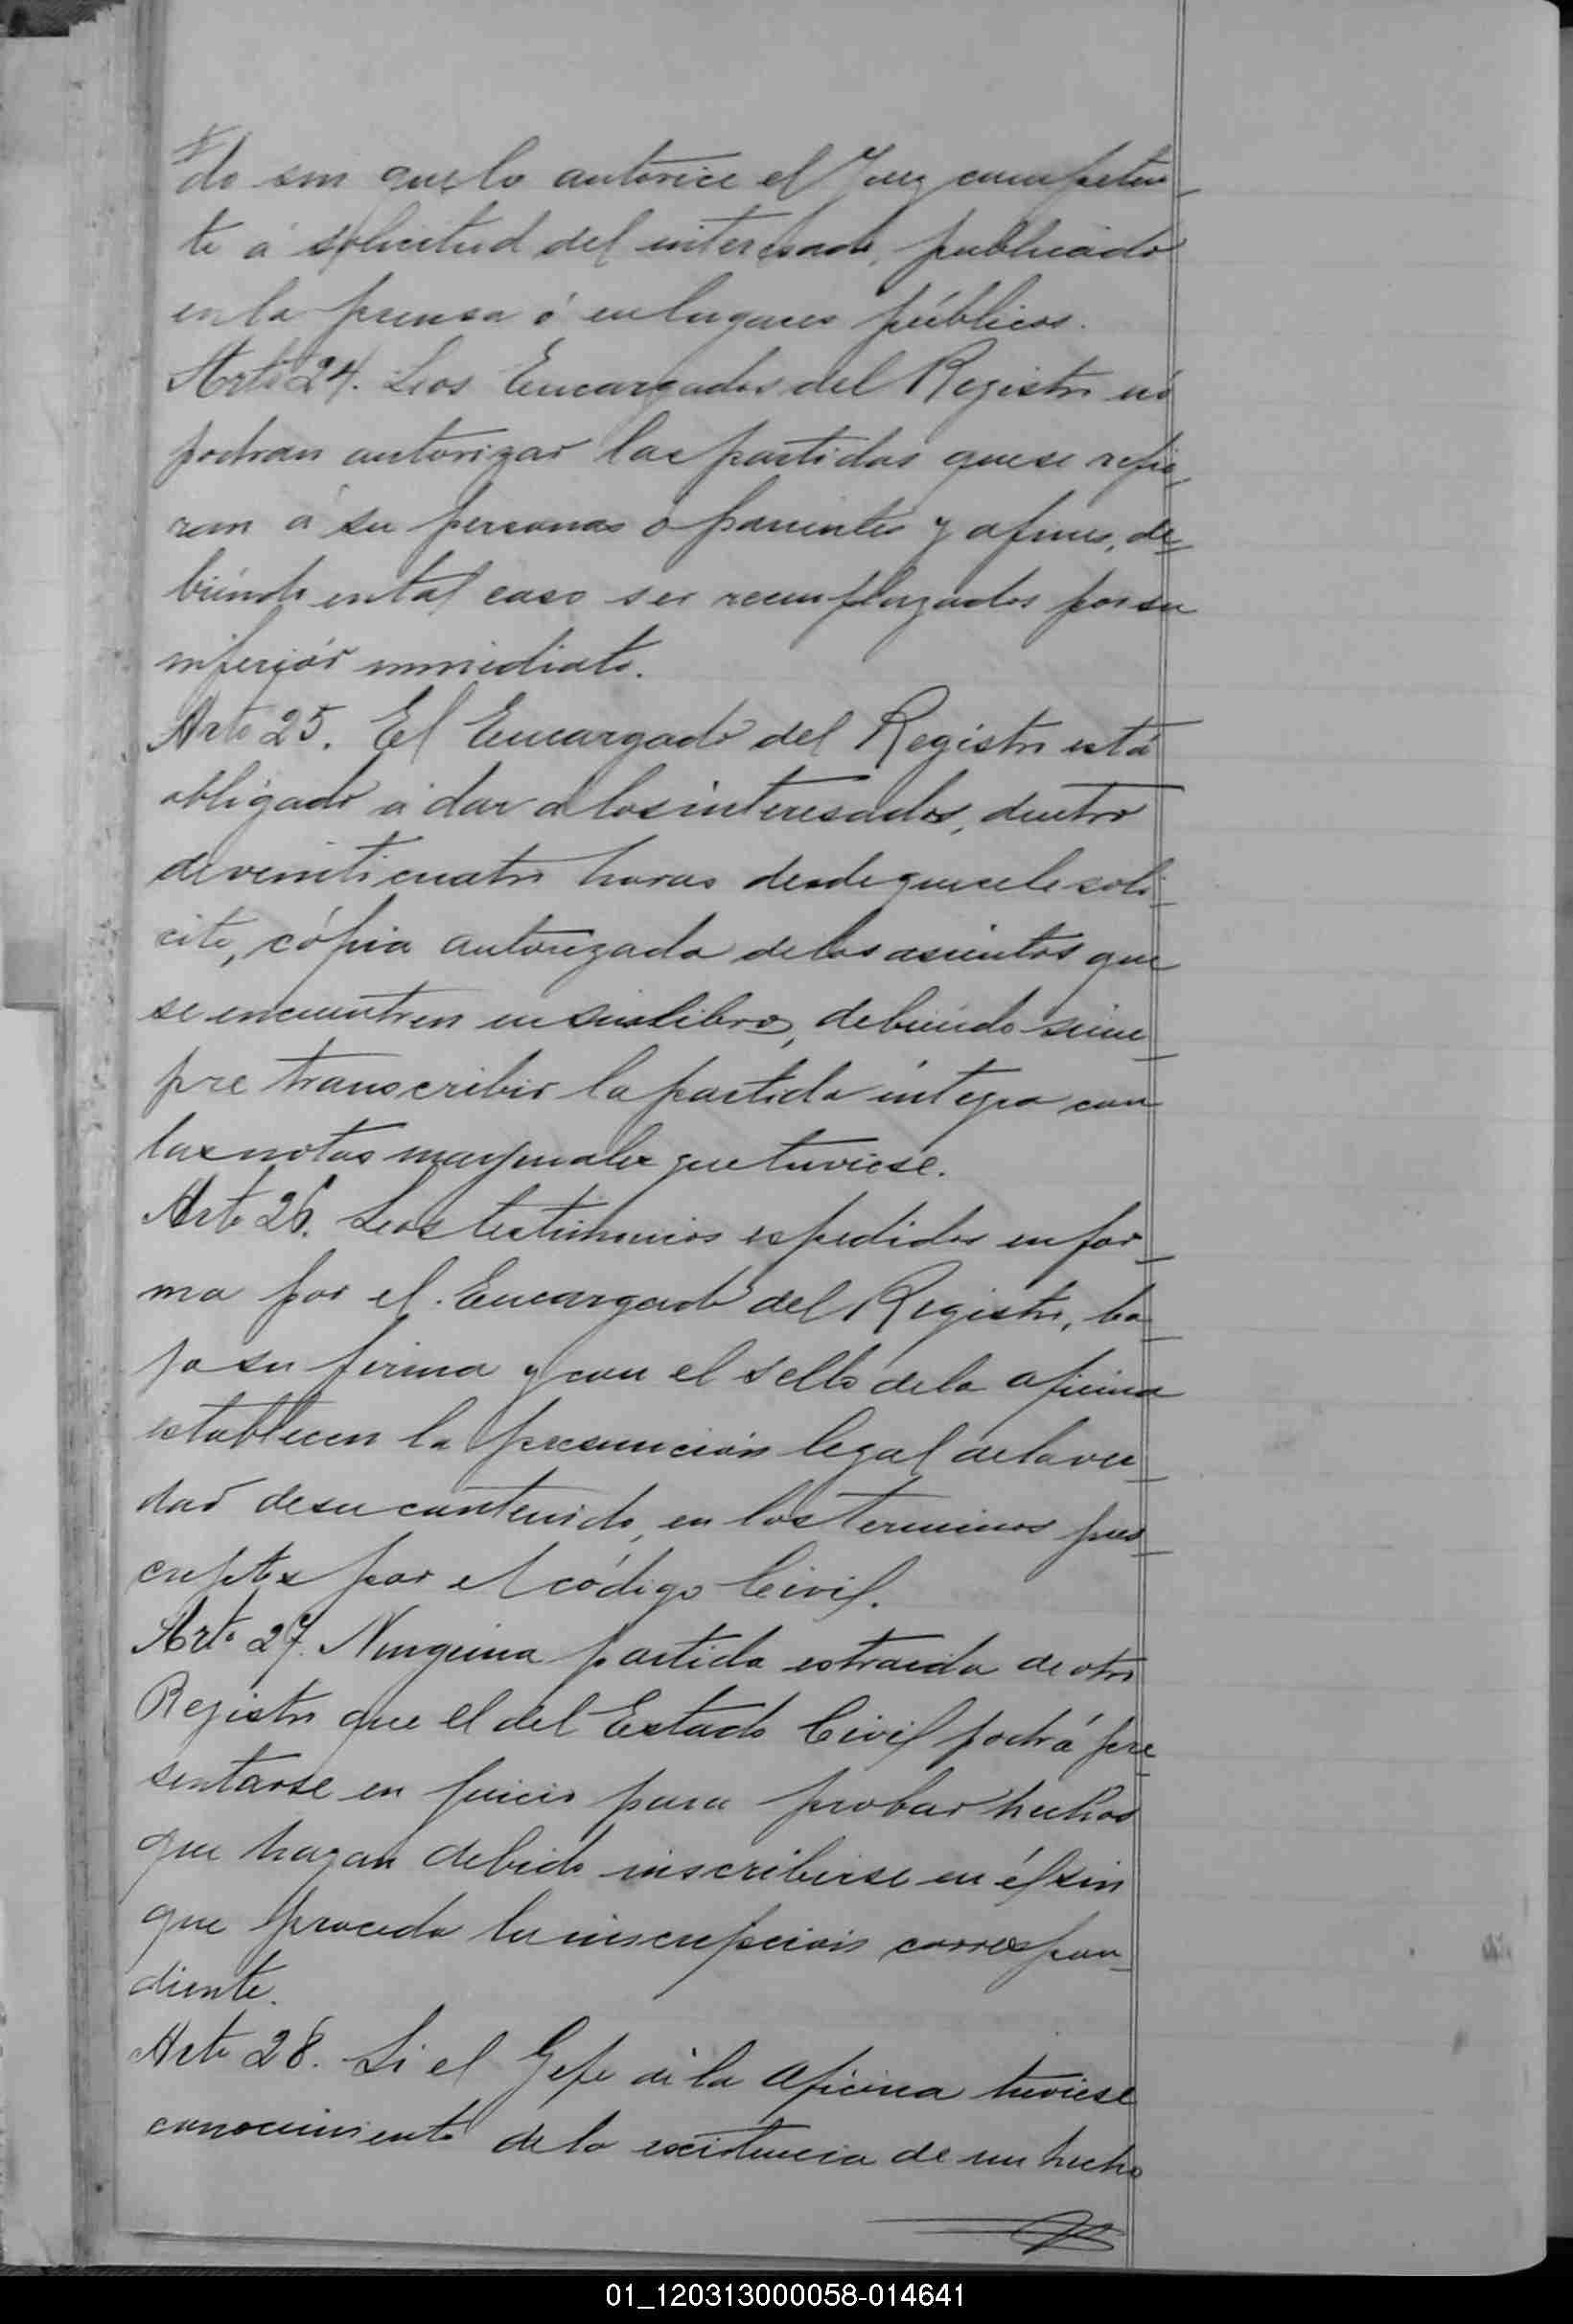 do sin que lo autorice el Juez competen-
te á solicitud del interesado, publicado
en la prensa ó en lugares públicos.
Arto 24. Los Encargados del Registro nó
podran autorizar las partidas que se refie-
ran á su personas o parientes y afines, de-
biendo en tal caso ser reemplazados por su
inferiór inmediato.
Arto 25. El Encargado del Registro está
obligado á dar a los interesados, dentro
de veinticuatro horas desde que se le soli-
cite, cópia autorizada de los asientos que
se encuentren en sus libros, debiendo siem-
pre transcribir la partida integra con
las notas marginales que tuviese.
Arto 26. Los testimonios espedidos en for-
ma por el Encargado del Registro, ba-
jo su firma y con el sello de la oficina
establecen la presunción legal de la ver-
dad de su contenido, en los terminos pres-
criptos por el código Civil.
Arto 27. Ninguna partida estraida de otro
Registro que el del Estado Civil podrá pre-
sentarse en juicio para probar hechos
que hayan debido inscribirse en él sin
que proceda la inscripción correspon-
diente.
Arto 28. Si el Gefe de la Oficina tuviese
conocimiento de la existencia de un hecho
01_120313000058-014641